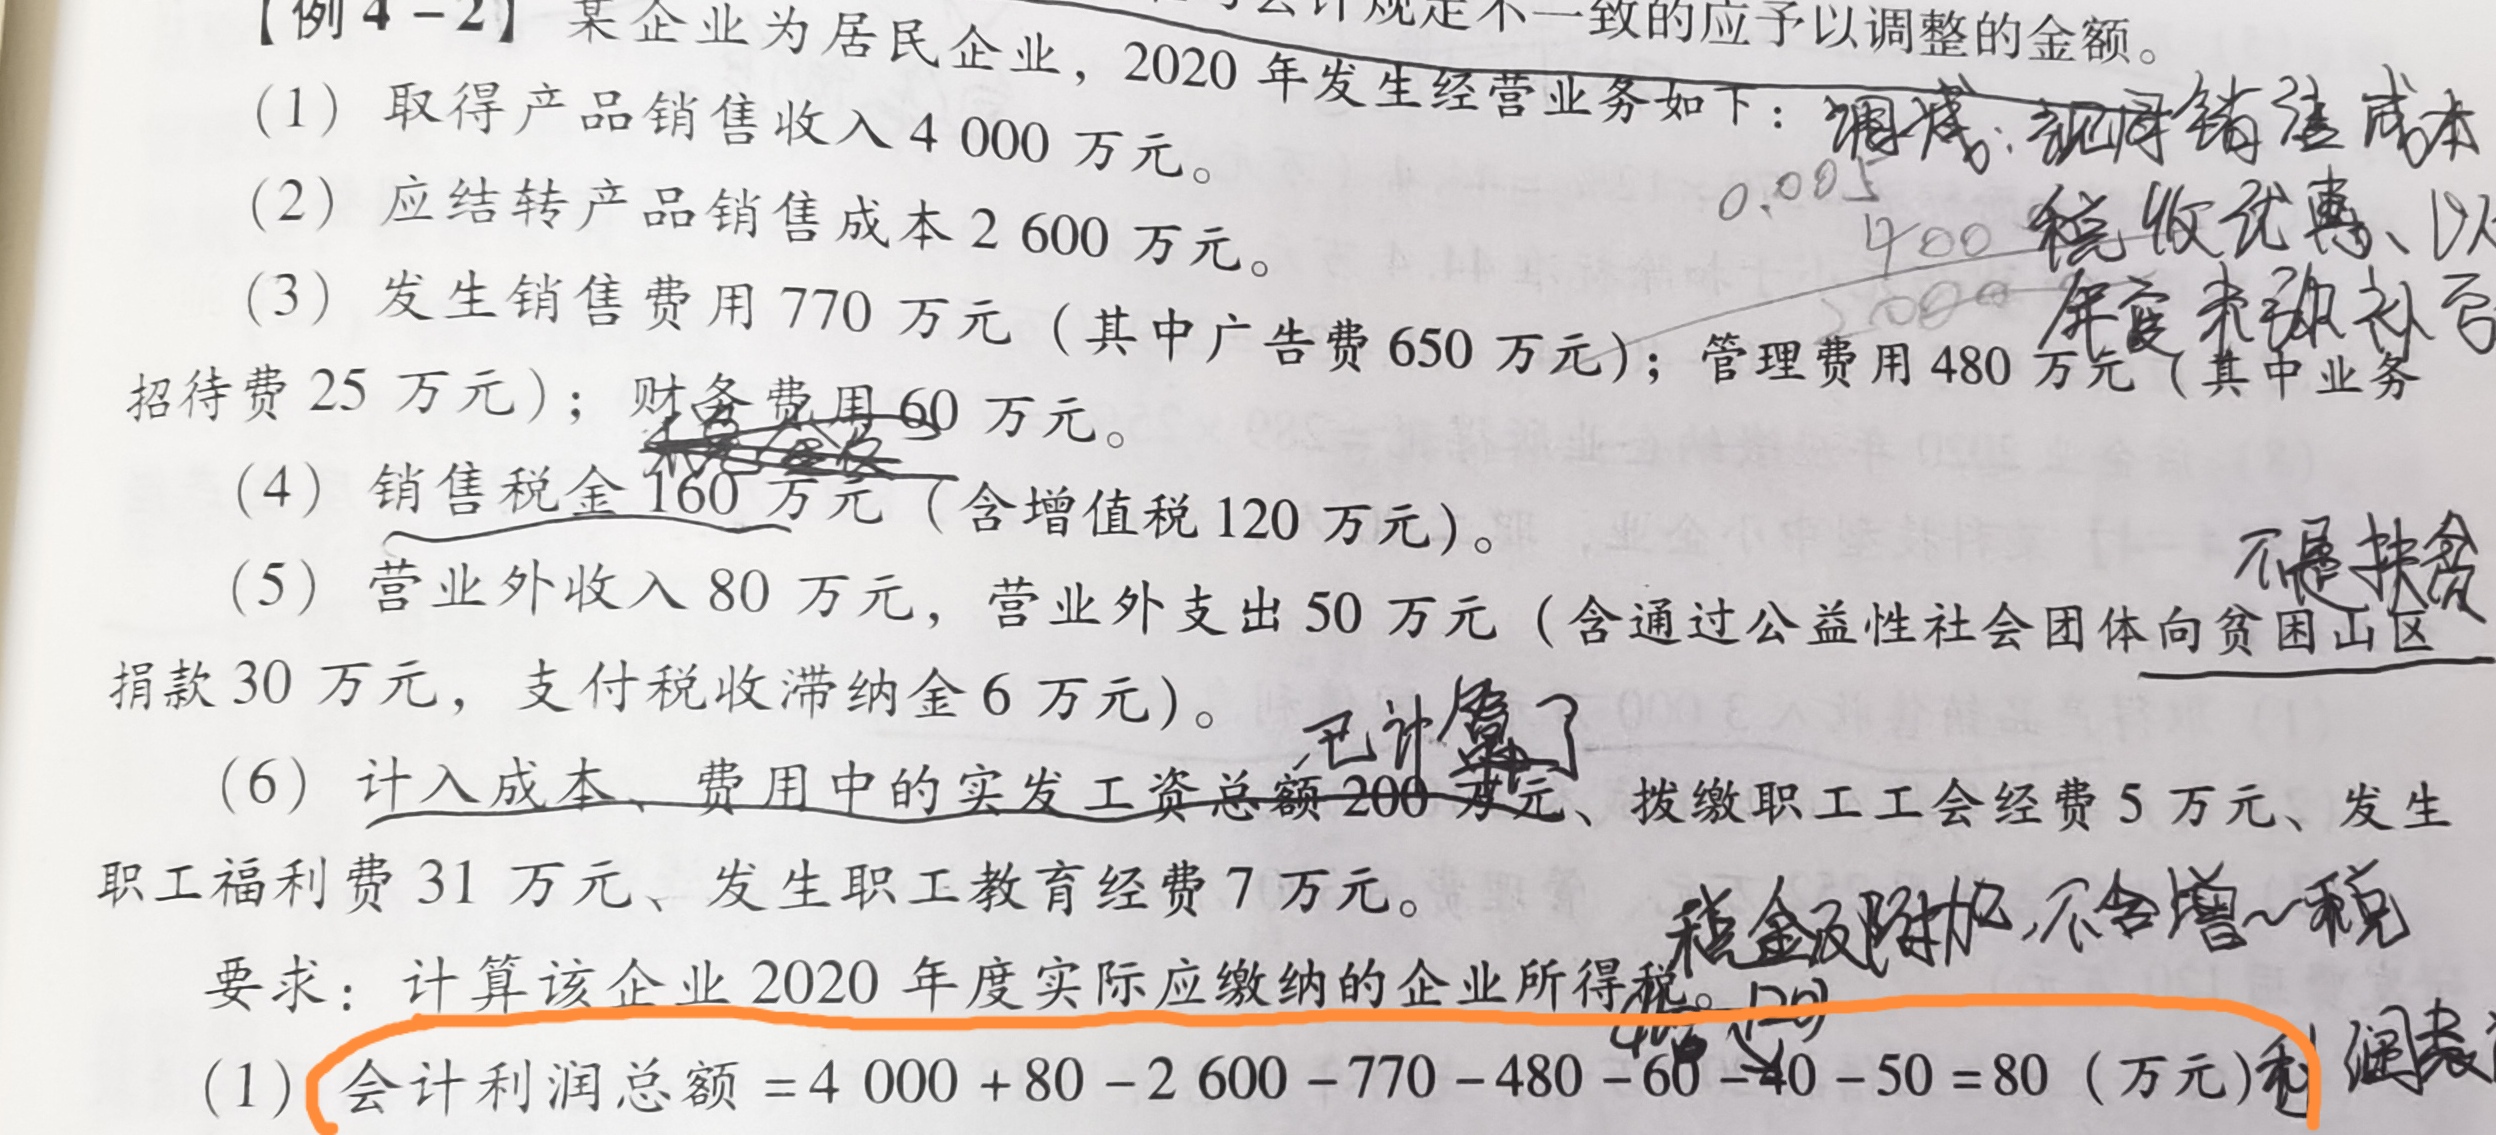 会计规定不一致的应予以调整的金额。
【例4-2】某企业为居民企业，2020年发生经营业务如下：
调减：视同销售成本
(1) 取得产品销售收入4 000万元。
0.005
税收优惠、以
400
(2) 应结转产品销售成本2 600万元。
2000
年度未弥补亏
(3) 发生销售费用770万元（其中广告费650万元）；管理费用480万元（其中业务
招待费25万元）；财务费用60万元。
(4) 销售税金160万元（含增值税120万元）。
不是扶贫
(5) 营业外收入80万元，营业外支出50万元（含通过公益性社会团体向贫困山区
捐款30万元，支付税收滞纳金6万元）。
已计算了
(6) 计入成本、费用中的实发工资总额200万元、拨缴职工工会经费5万元、发生
职工福利费31万元、发生职工教育经费7万元。
税金及附加，不含增~税
要求：计算该企业2020年度实际应缴纳的企业所得税。
(1) 会计利润总额=4 000+80-2 600-770-480-60-40-50=80（万元）
利润表